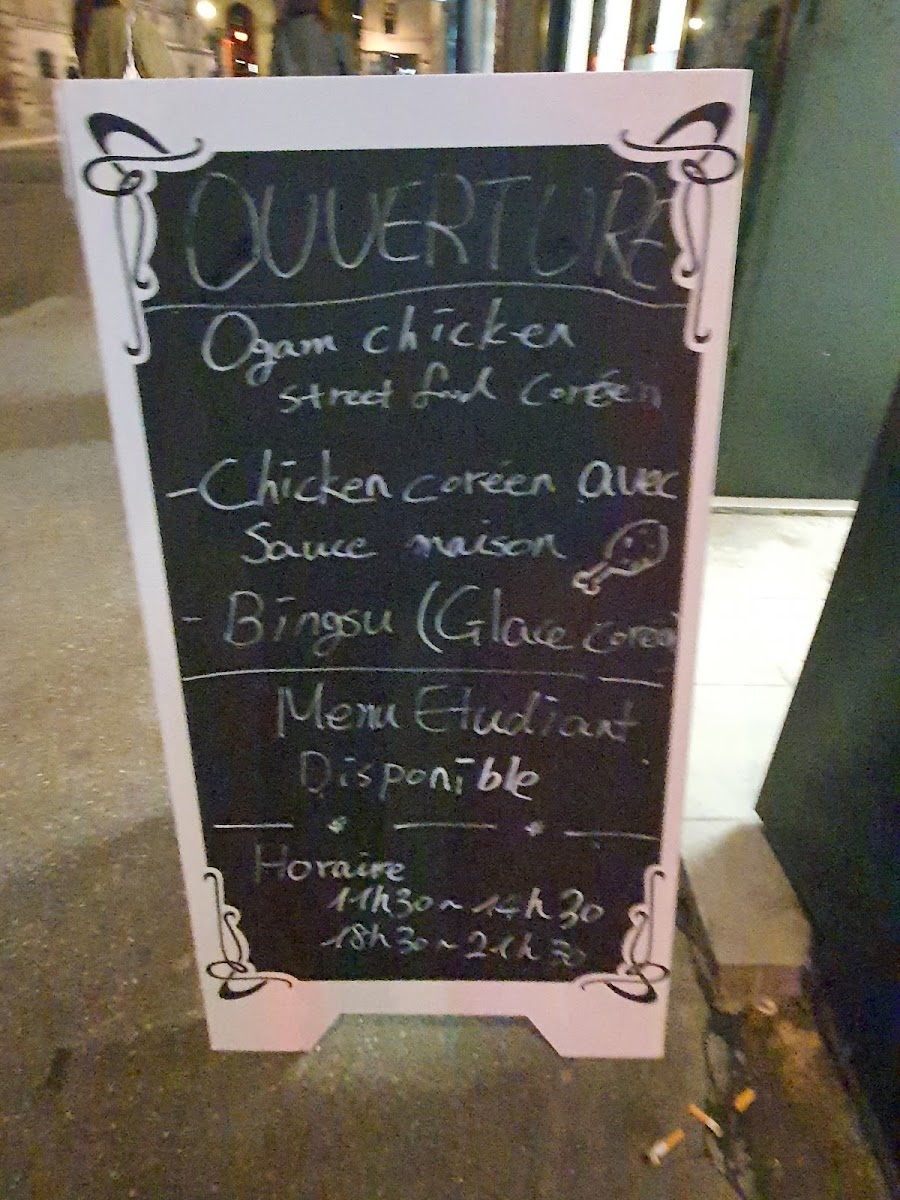 OUVERTURE
Ogam chicken
street food coréen
- Chicken coréen avec
Sauce maison
- Bingsu (Glace coréen
Menu Etudiant
Disponible
Horaire
11h30 ~ 14h30
18h30 ~ 21h30